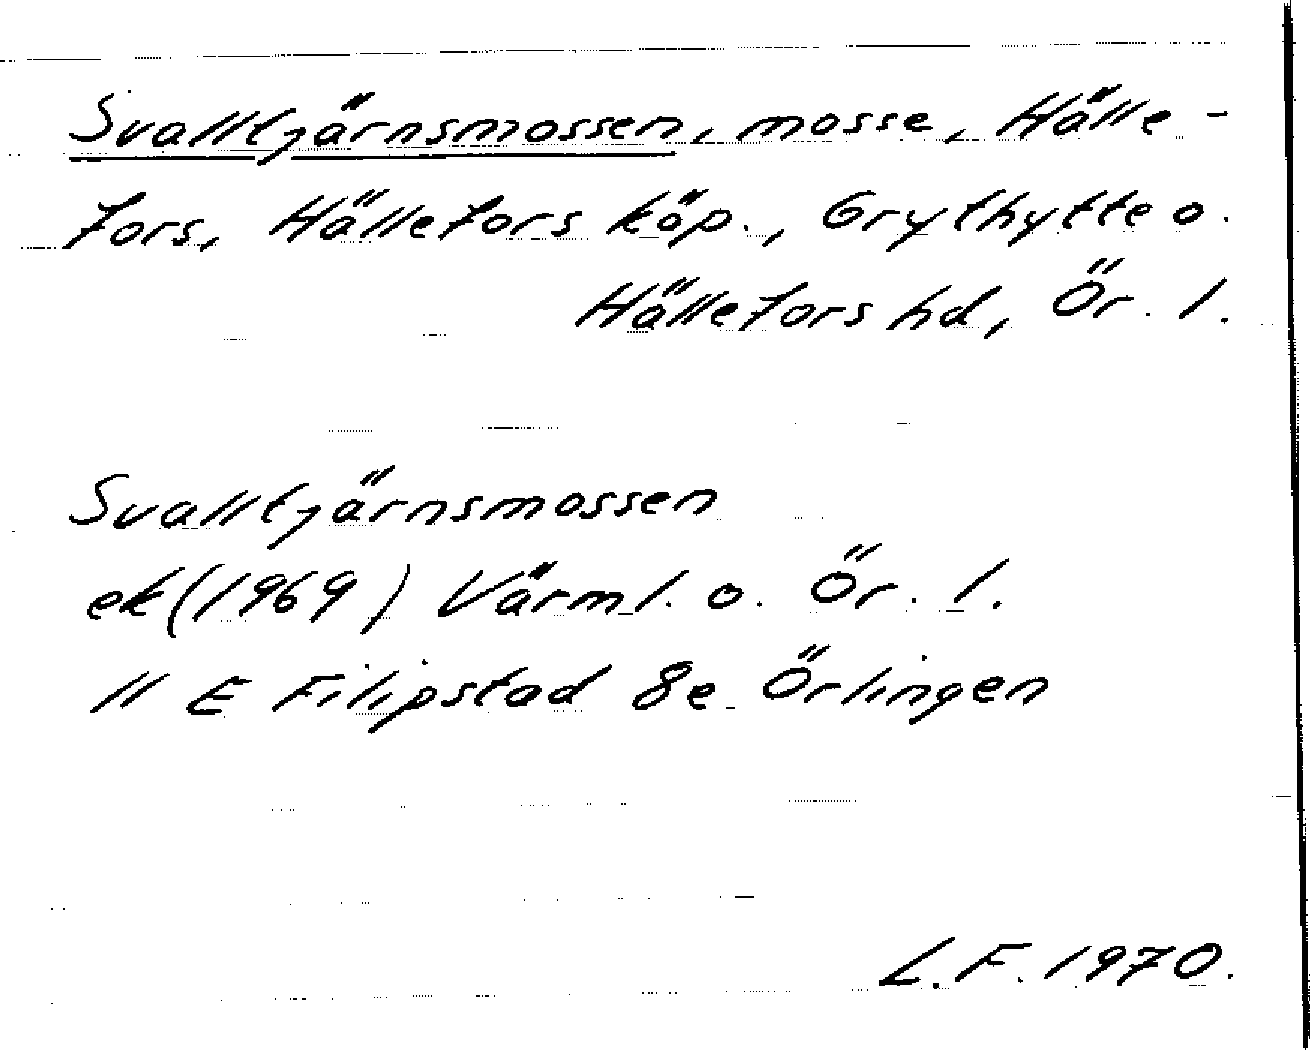 Svalltjärnsmossen, mosse, Hälle-
fors, Hällefors köp., Grythytte o.
Hällefors hd, Ör. l.
Svalltjärnsmossen
ek (1969) Värml. o. Ör. l.
11 E Filipstad 8e Örlingen
L.F. 1970.